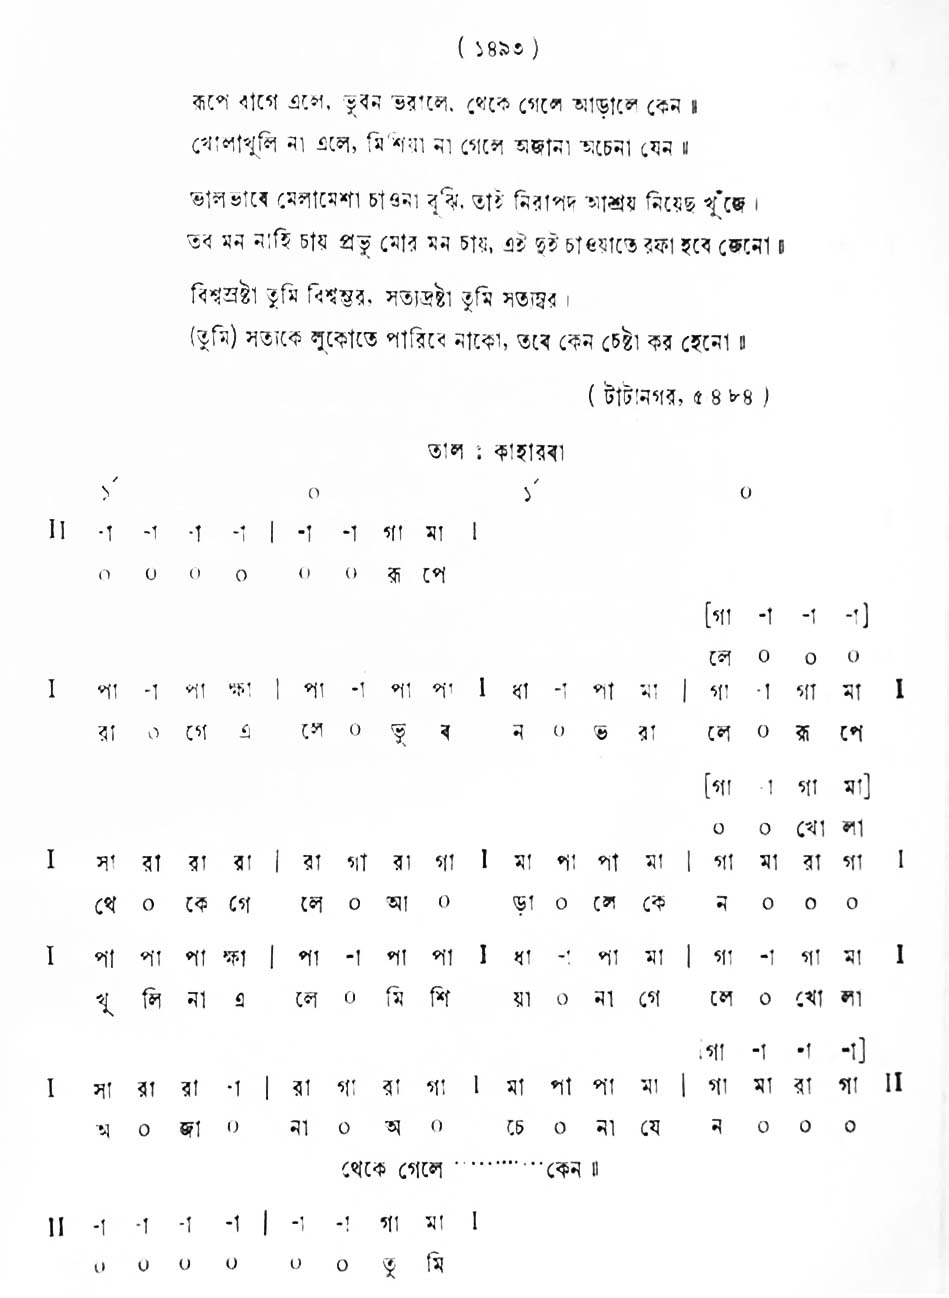 ( ১৪৯৩ )
রূপে রাগে এলে, ভুবন ভরালে, থেকে গেলে আড়ালে কেন ॥
খোলাখুলি না এলে, মিশিয়া না গেলে অজানা অচেনা যেন ॥
ভালভাবে মেলামেশা চাওনা বুঝি, তাই নিরাপদ আশ্রয় নিয়েছ খুঁজে ।
তব মন নাহি চায় প্রভু মোর মন চায়, এই দুই চাওয়াতে রফা হবে জেনো ॥
বিশ্বস্রষ্টা তুমি বিশ্বম্ভর, সত্যদ্রষ্টা তুমি সত্যস্বর ।
(তুমি) সত্যকে লুকোতে পারিবে নাকো, তবে কেন চেষ্টা কর হেনো ॥
( টাটানগর, ৫ ৪ ৮৪ )
তাল : কাহারবা
১´ ০ ১´ ০
II -া -া -া -া | -া -া গা মা I
০ ০ ০ ০ ০ ০ রূ পে
[গা -া -া -া]
লে ০ ০ ০
I পা -া পা ক্ষা | পা -া পা পা I ধা -া পা মা | গা -া গা মা I
রা ০ গে এ লে ০ ভু ব ন ০ ভ রা লে ০ রূ পে
[গা -া গা মা]
০ ০ খো লা
I সা রা রা রা | রা গা রা গা I মা পা পা মা | গা মা রা গা I
থে ০ কে গে লে ০ আ ০ ড়া ০ লে কে ন ০ ০ ০
I পা পা পা ক্ষা | পা -া পা পা I ধা -া পা মা | গা -া গা মা I
খু লি না এ লে ০ মি শি য়া ০ না গে লে ০ খো লা
[গা -া -া -া]
I সা রা রা -া | রা গা রা গা I মা পা পা মা | গা মা রা গা II
অ ০ জা ০ না ০ অ ০ চে ০ না যে ন ০ ০ ০
থেকে গেলে ············কেন ॥
II -া -া -া -া | -া -া গা মা I
০ ০ ০ ০ ০ ০ তু মি